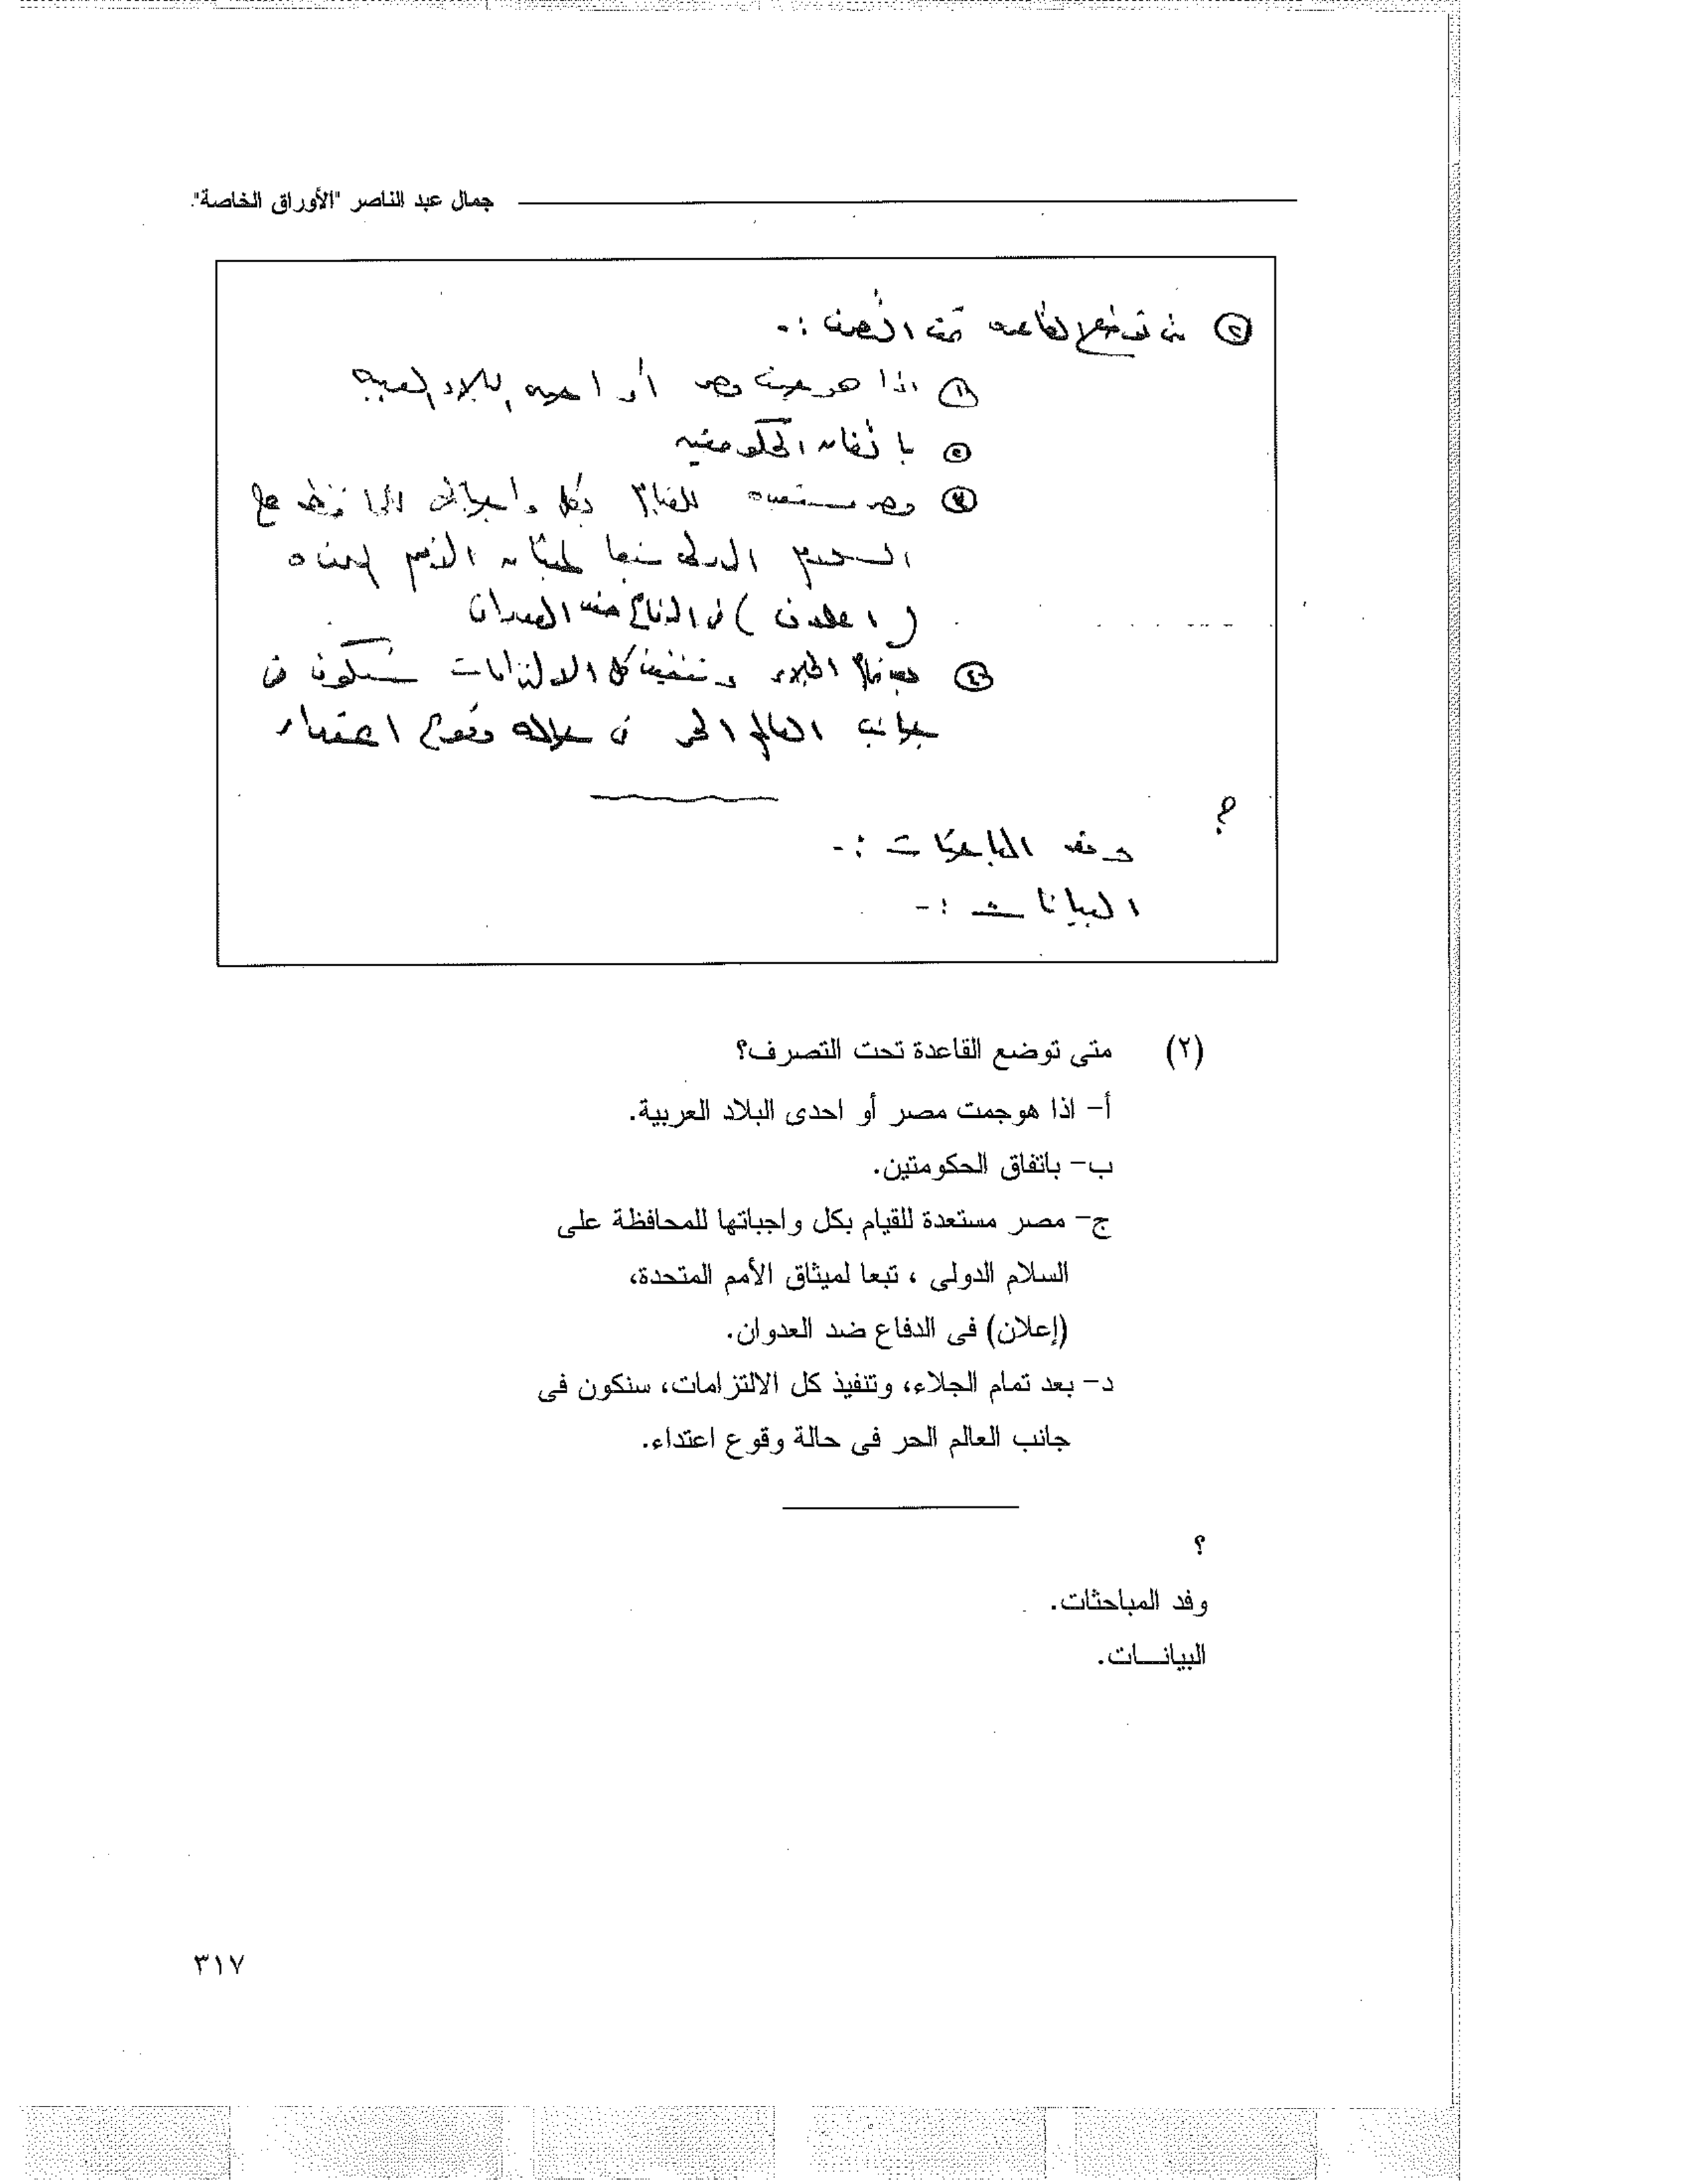 جمال عبد الناصر "الأوراق الخاصة".
② متى توضع القاعده تحت التصرف :-
① اذا هوجمت مصر أو احدى البلاد العربيه
② باتفاق الحكومتين
③ مصر مستعده للقيام بكل واجباتها للمحافظه على
السلام الدولى تبعا لميثاق الأمم المتحده
(اعلان) فى الدفاع ضد العدوان
④ بعد تمام الجلاء وتنفيذ كل الالتزامات سنكون فى
جانب العالم الحر فى حالة وقوع اعتداء
؟
وفد المباحثات :-
البيانات :-
(٢) متى توضع القاعدة تحت التصرف؟
أ- اذا هوجمت مصر أو احدى البلاد العربية.
ب- باتفاق الحكومتين.
ج- مصر مستعدة للقيام بكل واجباتها للمحافظة على
السلام الدولى ، تبعا لميثاق الأمم المتحدة،
(إعلان) فى الدفاع ضد العدوان.
د- بعد تمام الجلاء، وتنفيذ كل الالتزامات، سنكون فى
جانب العالم الحر فى حالة وقوع اعتداء.
؟
وفد المباحثات.
البيانـــات.
٣١٧